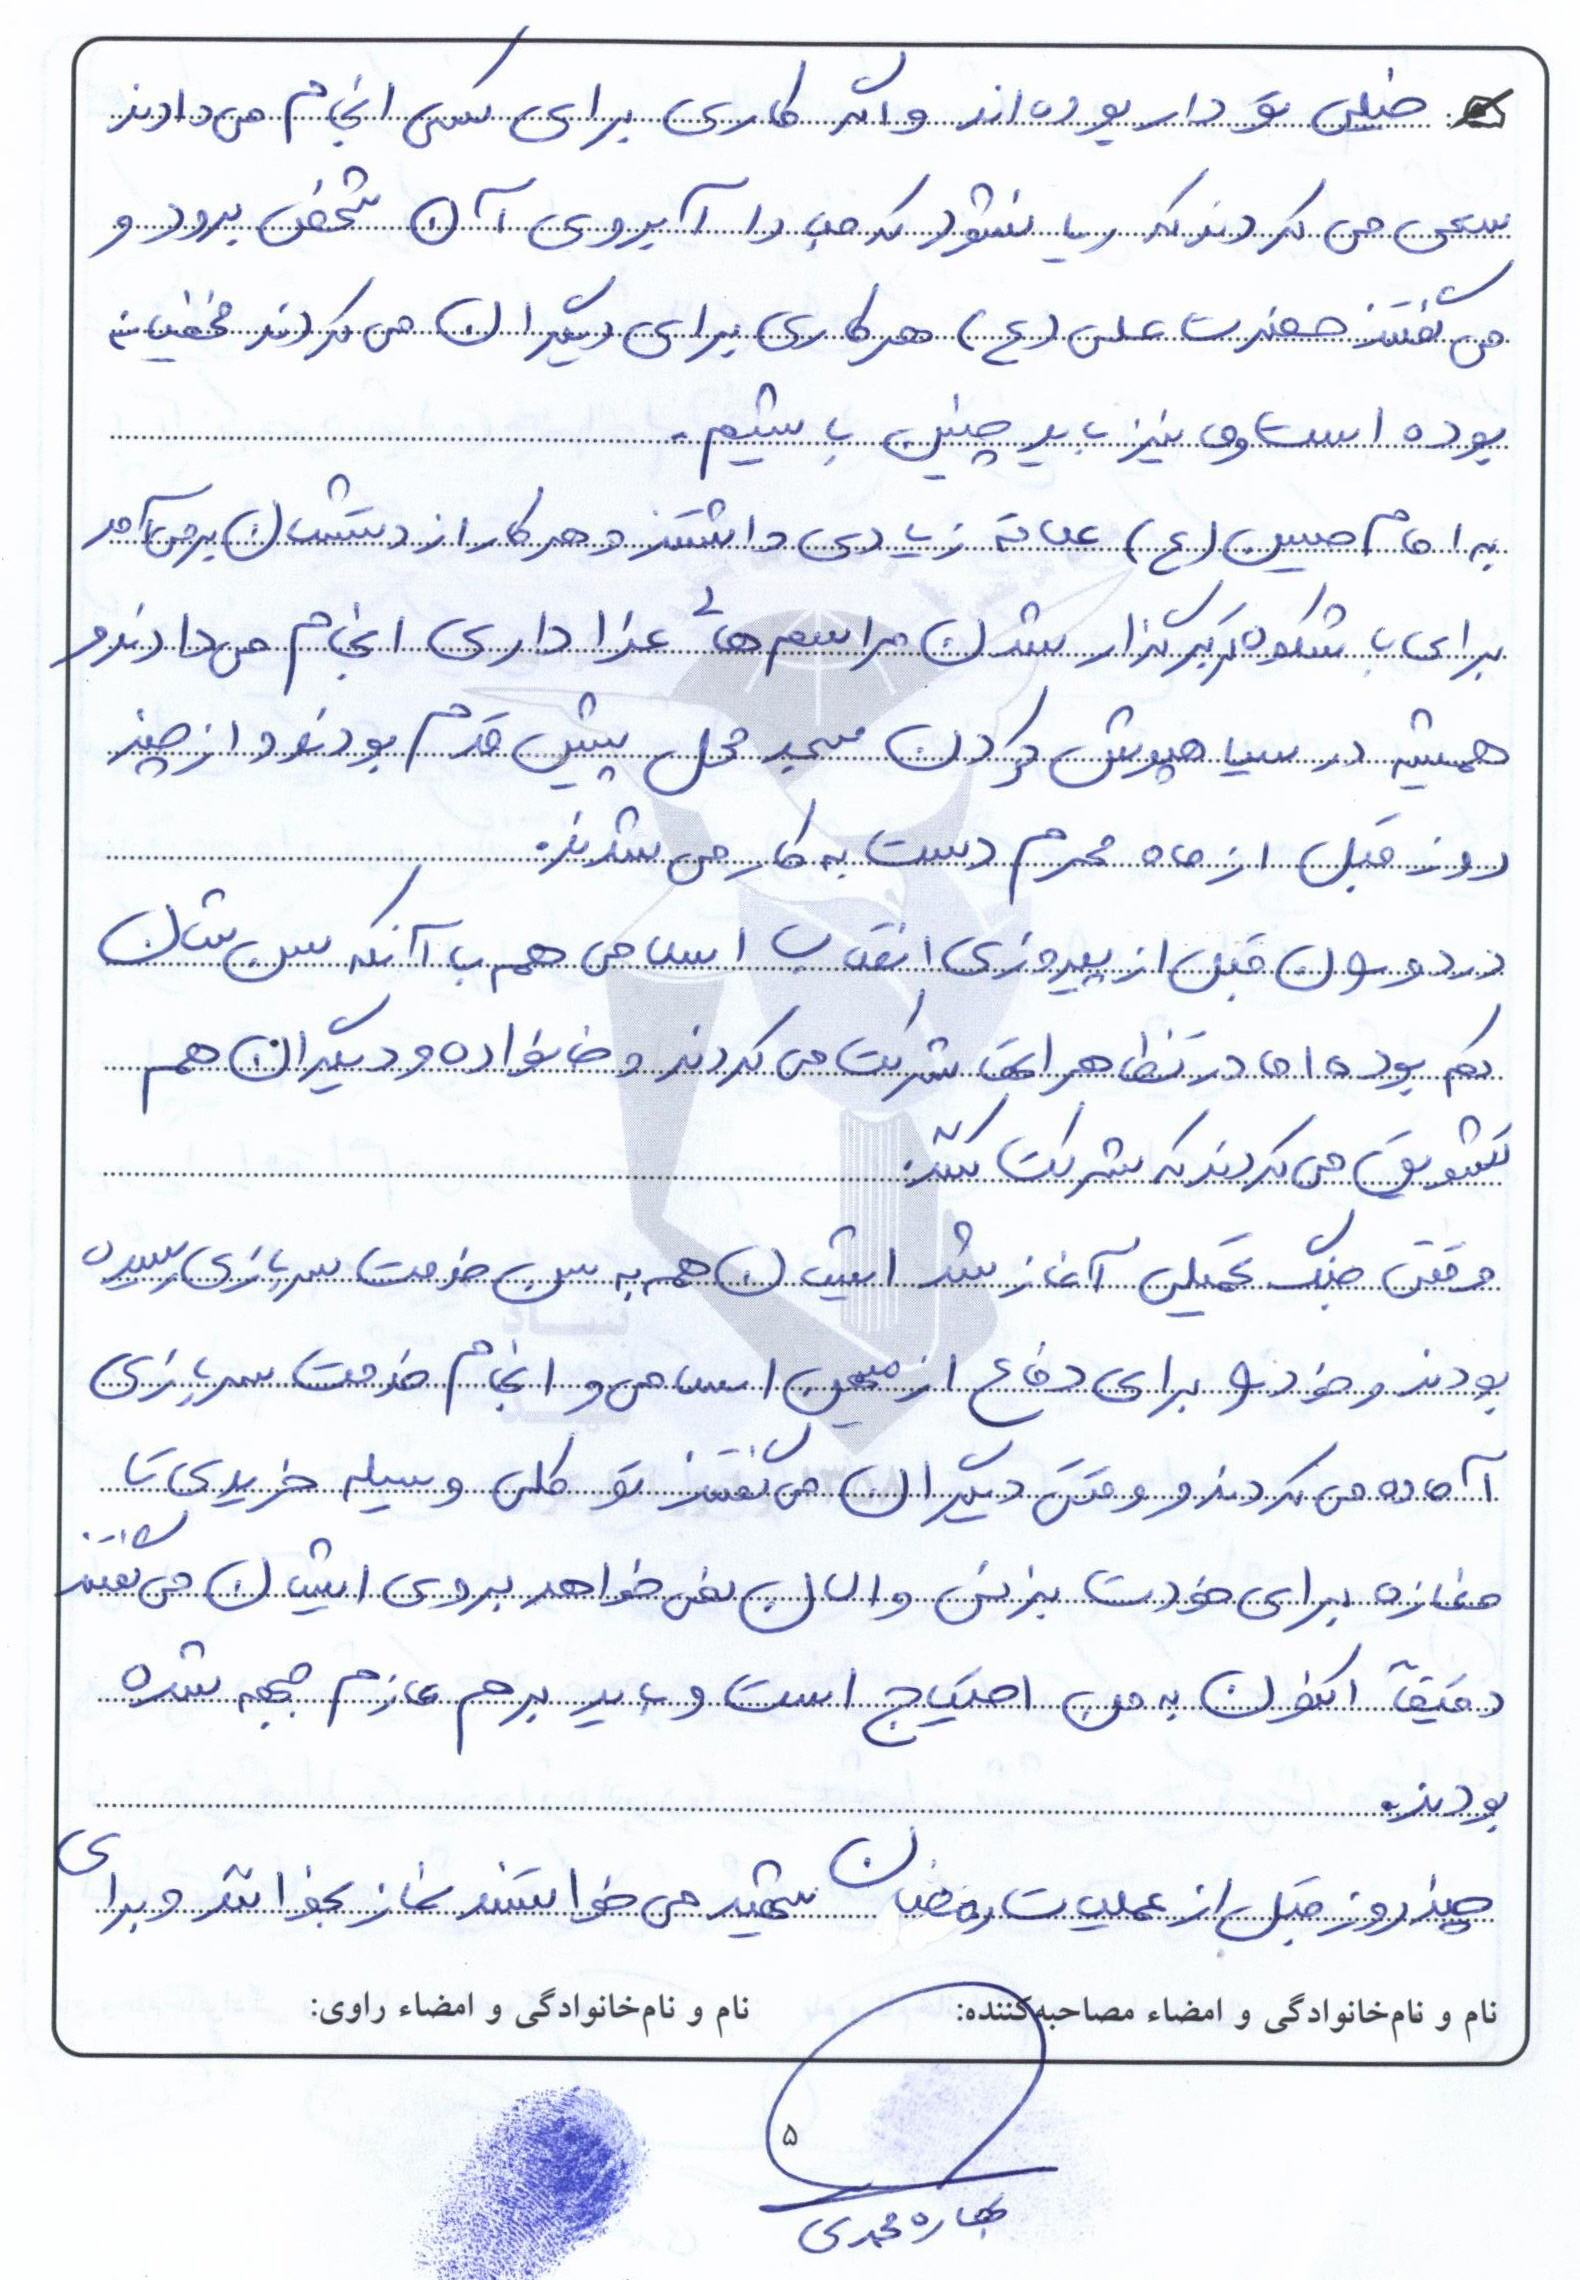 خیلی تو دار بوده‌اند و اگر کاری برای کسی انجام می‌دادند
سعی می کردند که ریا نشود که مبادا آبروی آن شخص برود و
می گفتند حضرت علی (ع) هر کاری برای دیگران می کردند مخفیانه
بوده است و ما نیز باید چنین باشیم.
به امام حسین (ع) علاقه زیادی داشتند و هر کار از دستشان برمی‌آمد
برای با شکوه‌تر برگزار شدن مراسم های عزاداری انجام می‌دادند و
همیشه در سیاهپوش کردن مسجد محل پیش قدم بودند و از چند
روز قبل از ماه محرم دست به کار می شدند.
در دوران قبل از پیروزی انقلاب اسلامی هم با آنکه سن شان
کم بوده اما در تظاهرات شرکت می کردند و خانواده و دیگران هم
تشویق می کردند که شرکت کنند.
وقتی جنگ تحمیلی آغاز شد ایشان هم به سن خدمت سربازی رسیده
بودند و خود را برای دفاع از میهن اسلامی و انجام خدمت سربازی
آماده می کردند و وقتی دیگران می گفتند تو کلی وسیله خریدی تا
مغازه برای خودت بزنی و الان نمی خواهد بروی ایشان می گفتند
دقیقاً اکنون به من احتیاج است و باید بروم عازم جبهه شده
بودند.
چند روز قبل از عملیات رمضان شهید می خواستند نماز بخوانند و برای
نام و نام‌خانوادگی و امضاء مصاحبه‌کننده:
نام و نام‌خانوادگی و امضاء راوی:
۵
بهاره محمدی